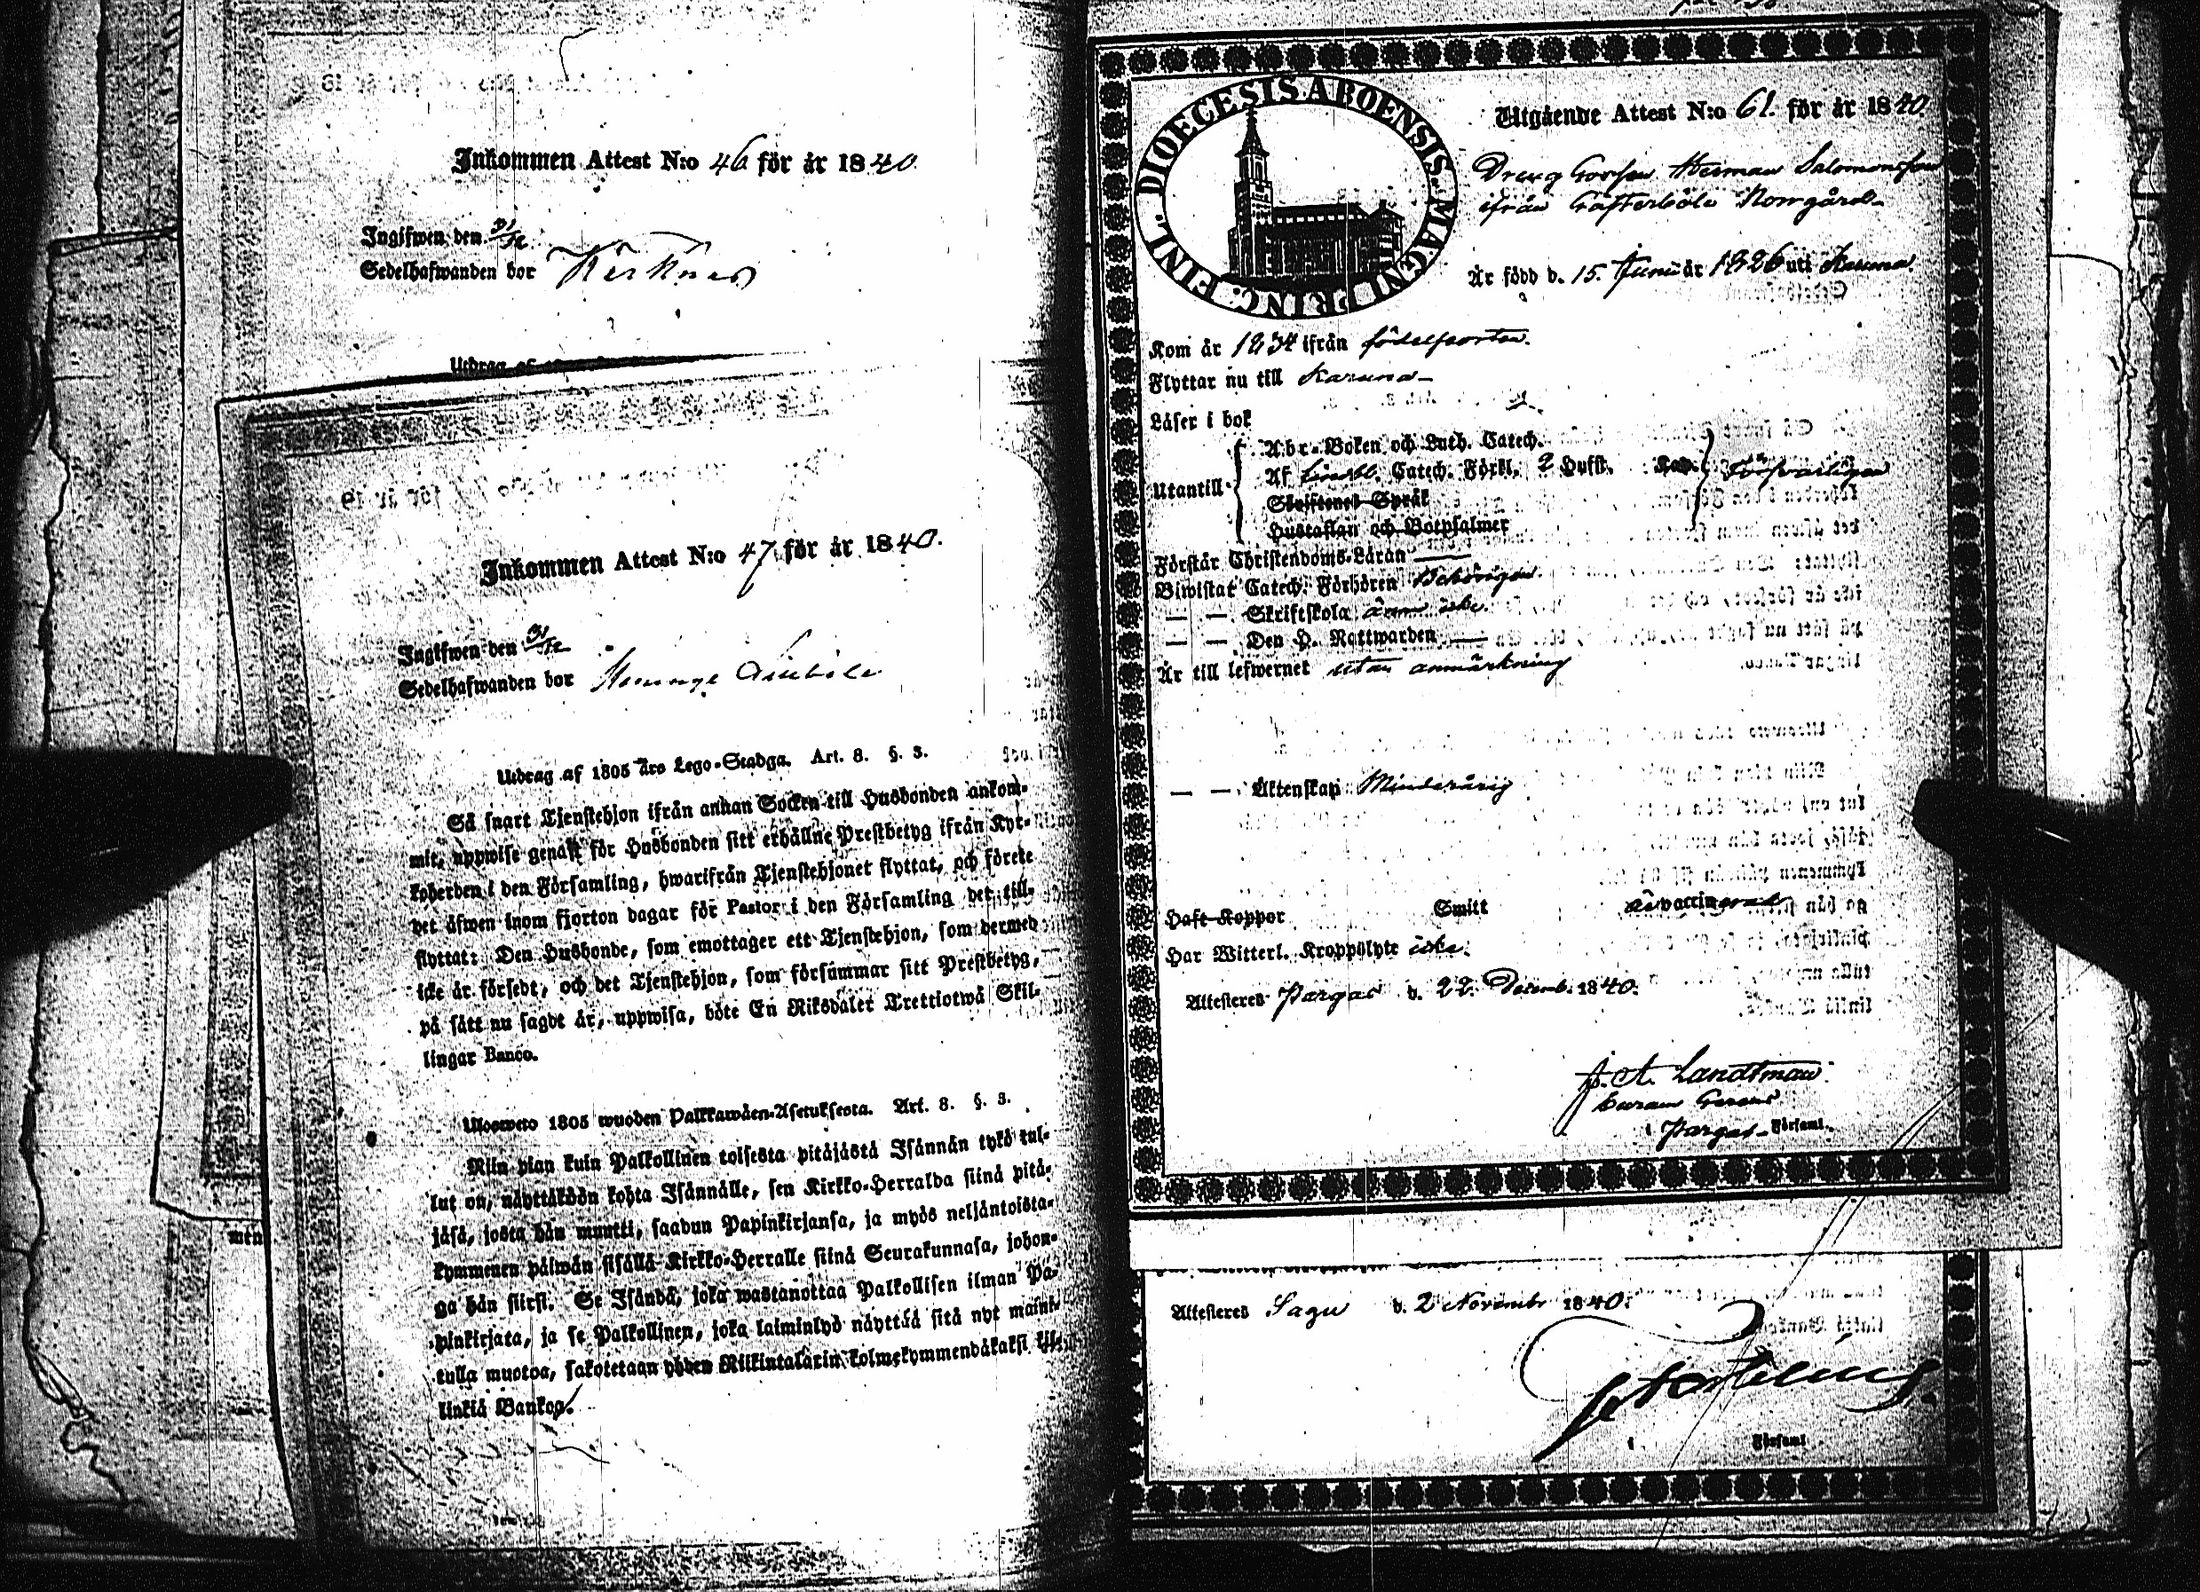 Inkommen Attest N:o 46 för år 1840.
Ingifwen den 31/12
Sedelhafwanden bor
Utdrag af
Inkommen Attest N:o 47 för år 1840.
Ingifwen den 31/12
Sedelhafwanden bor
Utdrag af 1805 års Lego-Stadga. Art. 8. §. 3.
Så snart Tjenstehjon ifrån annan Socken till Husbonden ankom-
mit, uppwise genast för Husbonden sitt erhållne Prestbetyg ifrån Kyr-
koherden i den Församling, hwarifrån Tjenstehjonet flyttat, och förete
det äfwen inom fjorton dagar för Pastor i den Församling det till-
flyttat: Den Husbonde, som emottager ett Tjenstehjon, som dermed
icke är försedt, och det Tjenstehjon, som försummar sitt Prestbetyg,
på sätt nu sagdt är, uppwisa, böte En Riksdaler Trettiotwå Skil-
lingar Banco.
Ulosweto 1805 wuoden Palkkawäen-Asetuksesta. Art. 8. §. 3.
Niin pian kuin Palkollinen toisesta pitäjästä Isännän tykö tul-
lut on, näyttäköön kohta Isännälle, sen Kirkko-Herralda siinä pitä-
jäsä, josta hän muutti, saadun Papinkirjansa, ja myös neljäntoista-
kymmenen päiwän sisällä Kirkko-Herralle siinä Seurakunnasa, johon-
ga hän siirsi. Se Isändä, joka wastanottaa Palkollisen ilman Pa-
pinkirjata, ja se Palkollinen, joka laiminlyö näyttää sitä nyt maini-
tulla muotoa, sakotetaan yhden Riikintalarin kolmekymmendäkaksi kil-
linkiä Bankoa.
DIOECESIS ABOENSIS MAGNI PRINC. FINL.
Utgående Attest N:o 61. för år 1840.
Dreng Gossen Herman Salomonsson
ifrån Norrgård
Är född d. 15. Junii år 1826 uti Karuna.
Kom år 1834 ifrån födelseorten.
Flyttar nu till Karuna
Läser i bok
Utantill
Abc-Boken och Luth. Catech.
Af Lindbl. Catech. Förkl. 2 Hufst. Kap. försvarligen
Skriftenes Språk
Hustaflan och Botpsalmer
Förstår Christendoms-Läran
Biwistat Catech. Förhören Behörigen
— — Skriftskola ännu icke.
— — Den H. Nattwarden
Är till lefwernet utan anmärkning
— — Äktenskap Minderårig
Haft Koppor Smitt är vaccinerad
Har Witterl. Kroppslyte icke.
Attesteres Pargas d. 22. Decemb. 1840.
Landtman
Curam Gerens
i Pargas Församl.
Attesteres Sagu d. 2 Novembr 1840.
i Församl.